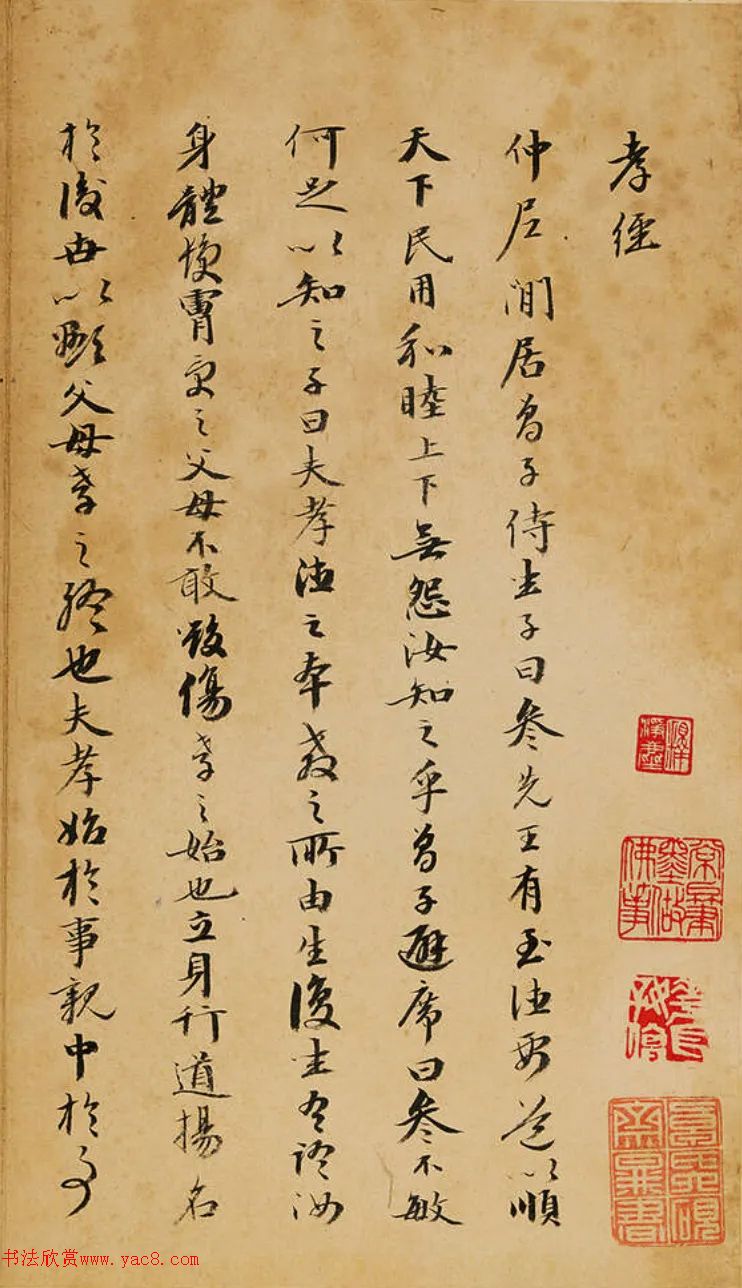 孝經
仲尼閒居曾子侍坐子曰參先王有至德要道以順
天下民用和睦上下無怨汝知之乎曾子避席曰參不敏
何足以知之子曰夫孝德之本教之所由生復坐吾語汝
身體髮膚受之父母不敢毀傷孝之始也立身行道揚名
於後世以顯父母孝之終也夫孝始於事親中於事
书法欣赏www.yac8.com